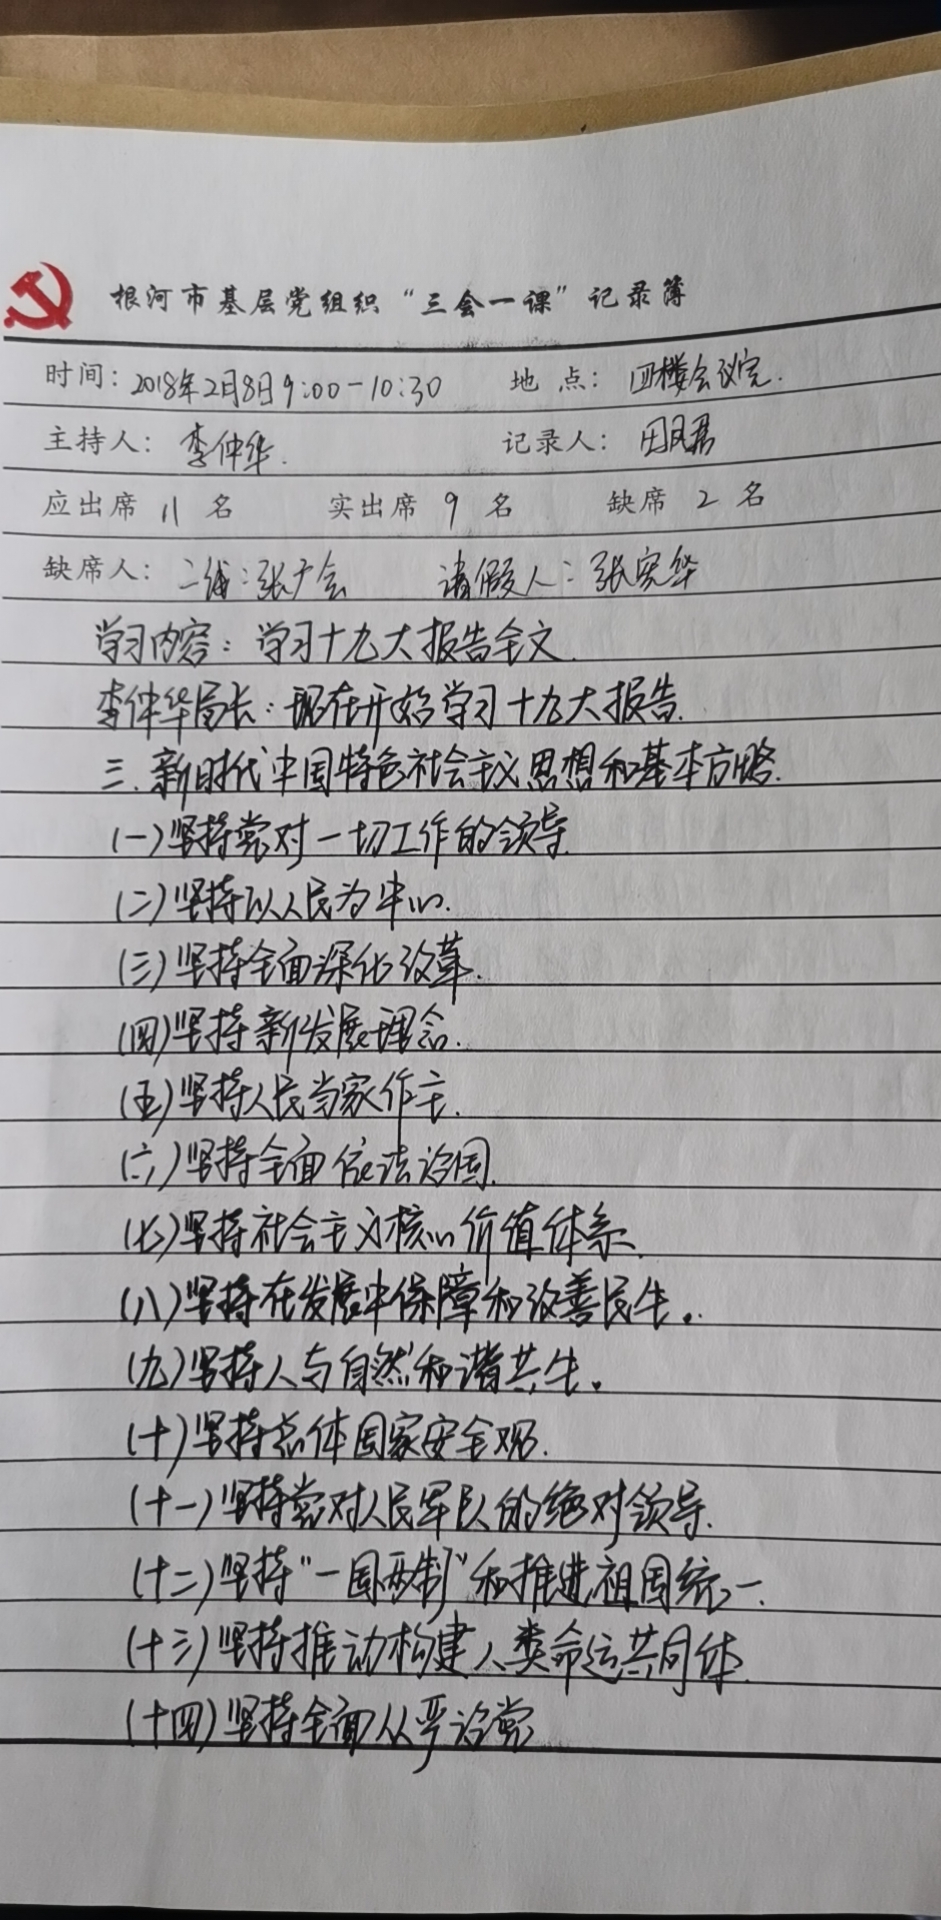 根河市基层党组织“三会一课”记录簿
时间：2018年2月8日9:00-10:30 地点：四楼会议室.
主持人：李仲华. 记录人：田凤君
应出席 11 名 实出席 9 名 缺席 2 名
缺席人：二线：张广会 请假人：张宪华
学习内容：学习十九大报告全文.
李仲华局长：现在开始学习十九大报告.
三.新时代中国特色社会主义思想和基本方略.
(一)坚持党对一切工作的领导.
(二)坚持以人民为中心.
(三)坚持全面深化改革.
(四)坚持新发展理念.
(五)坚持人民当家作主.
(六)坚持全面依法治国.
(七)坚持社会主义核心价值体系.
(八)坚持在发展中保障和改善民生。
(九)坚持人与自然和谐共生。
(十)坚持总体国家安全观.
(十一)坚持党对人民军队的绝对领导.
(十二)坚持“一国两制”和推进祖国统一.
(十三)坚持推动构建人类命运共同体.
(十四)坚持全面从严治党